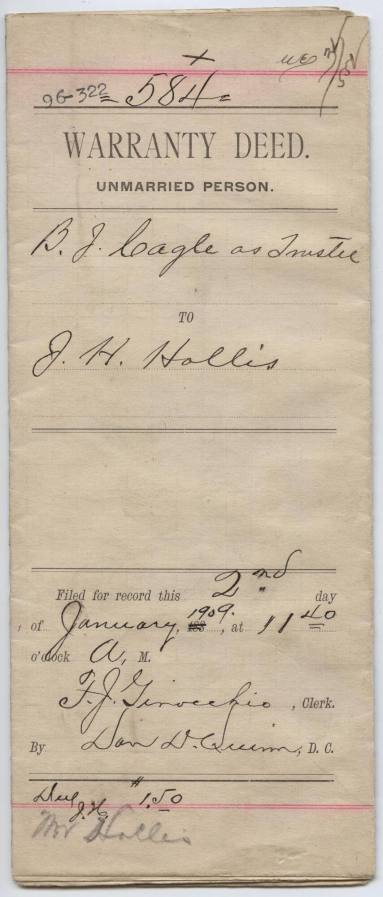 x
96-322 = 584 =
WARRANTY DEED.
UNMARRIED PERSON.
B. J. Cagle as Trustee
TO
J. H. Hollis
Filed for record this 2nd day
of January, 1909, at 11 40
o'clock A, M.
F. J. Ginocchio, Clerk.
By Dan D. Quinn, D. C.
Due $1.50
J. H.
Mr Hollis